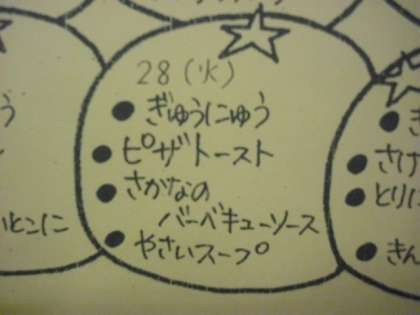 28(火)
● ぎゅうにゅう
● ピザトースト
● さかなの
バーベキューソース
● やさいスープ
いとこに
● さけ
● とりに
● きん